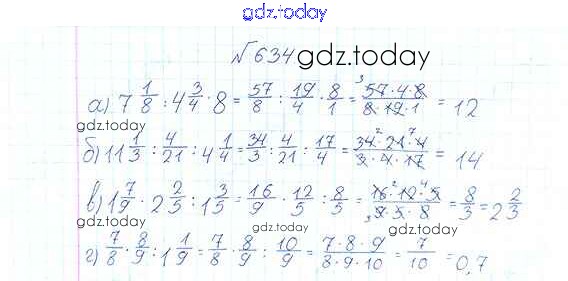 gdz.today
№634 gdz.today
а) 7 1/8 : 4 3/4 · 8 = 57/8 : 19/4 · 8/1 = 57·4·8/8·19·1 = 12
gdz.today
б) 11 1/3 : 4/21 : 4 1/4 = 34/3 : 4/21 : 17/4 = 34·21·4/3·4·17 = 14
в) 1 7/9 · 2 2/5 : 1 3/5 = 16/9 · 12/5 : 8/5 = 16·12·5/9·5·8 = 8/3 = 2 2/3
gdz.today gdz.today
г) 7/8 · 8/9 : 1 1/9 = 7/8 · 8/9 : 10/9 = 7·8·9/8·9·10 = 7/10 = 0,7